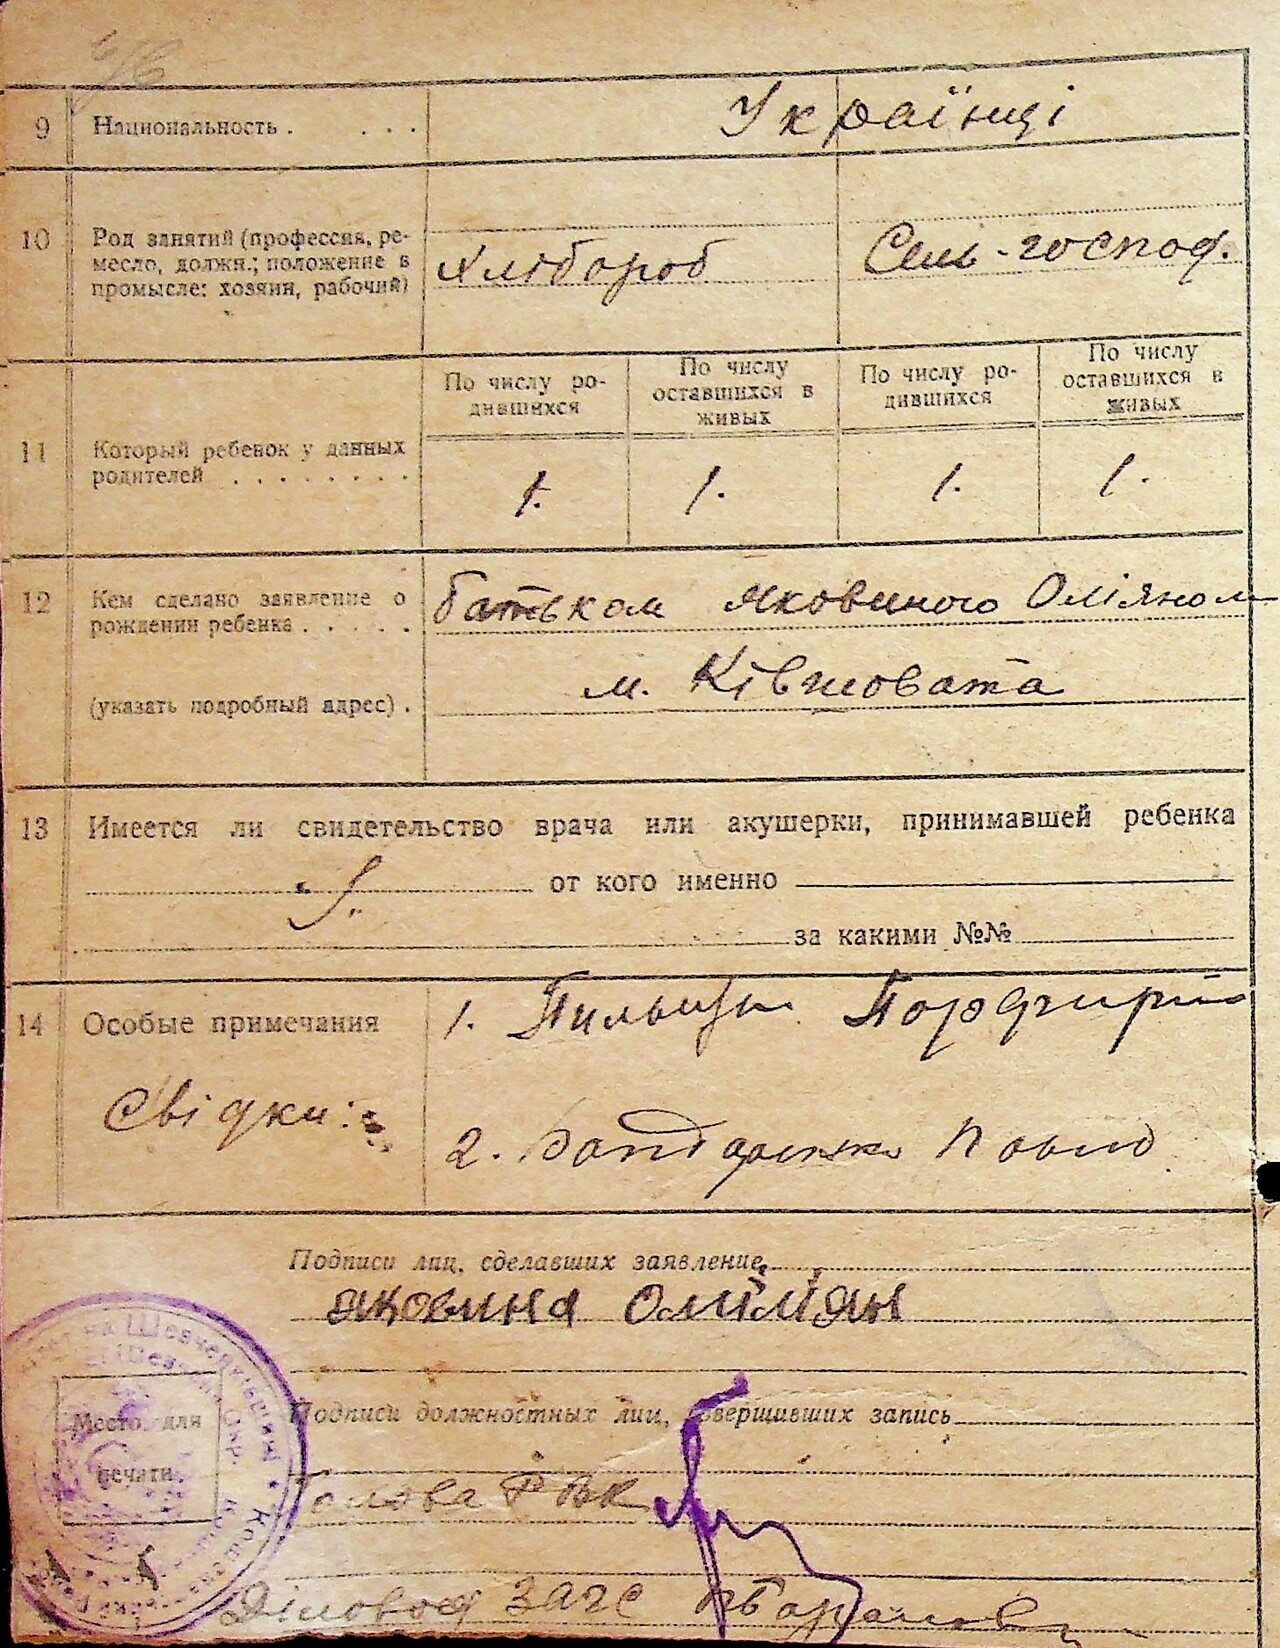 9 Национальность . . . . Українці
10 Род занятий (профессия, ре-
месло, должн.; положение в
промысле: хозяин, рабочий)
Хлібороб Сель-господ.
По числу ро-
дившихся
По числу
оставшихся в
живых
По числу ро-
дившихся
По числу
оставшихся в
живых
11 Который ребенок у данных
родителей . . . . . . . .
1. 1. 1. 1.
12 Кем сделано заявление о
рождении ребенка . . . . .
батьком Яковиного Оміяном
(указать подробный адрес) .
м. Ківшовата
13 Имеется ли свидетельство врача или акушерки, принимавшей ребенка
от кого именно
за какими №№
14 Особые примечания
1. Порфирій
Свідки:
2. Бондаренко Павло
Подписи лиц, сделавших заявление
Яковина Омілiян
Подписи должностных лиц, совершивших запись
Место для
печати
Голова РВК
Діловод ЗАГС